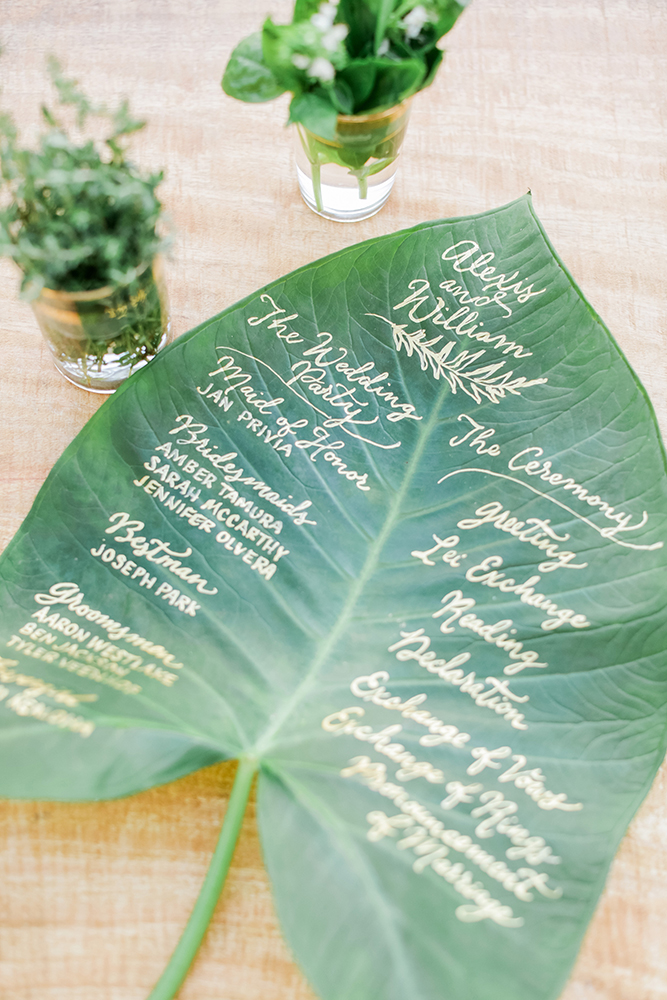 Alexis
and
William
The Wedding
Party
Maid of Honor
JAN PRIVIA
Bridesmaids
AMBER TAMURA
SARAH MCCARTHY
JENNIFER OLVERA
Bestman
JOSEPH PARK
Groomsman
AARON WESTLAKE
BEN JACKSON
TYLER
The Ceremony
Greeting
Lei Exchange
Reading
Declaration
Exchange of Vows
Exchange of Rings
Announcement
of Marriage